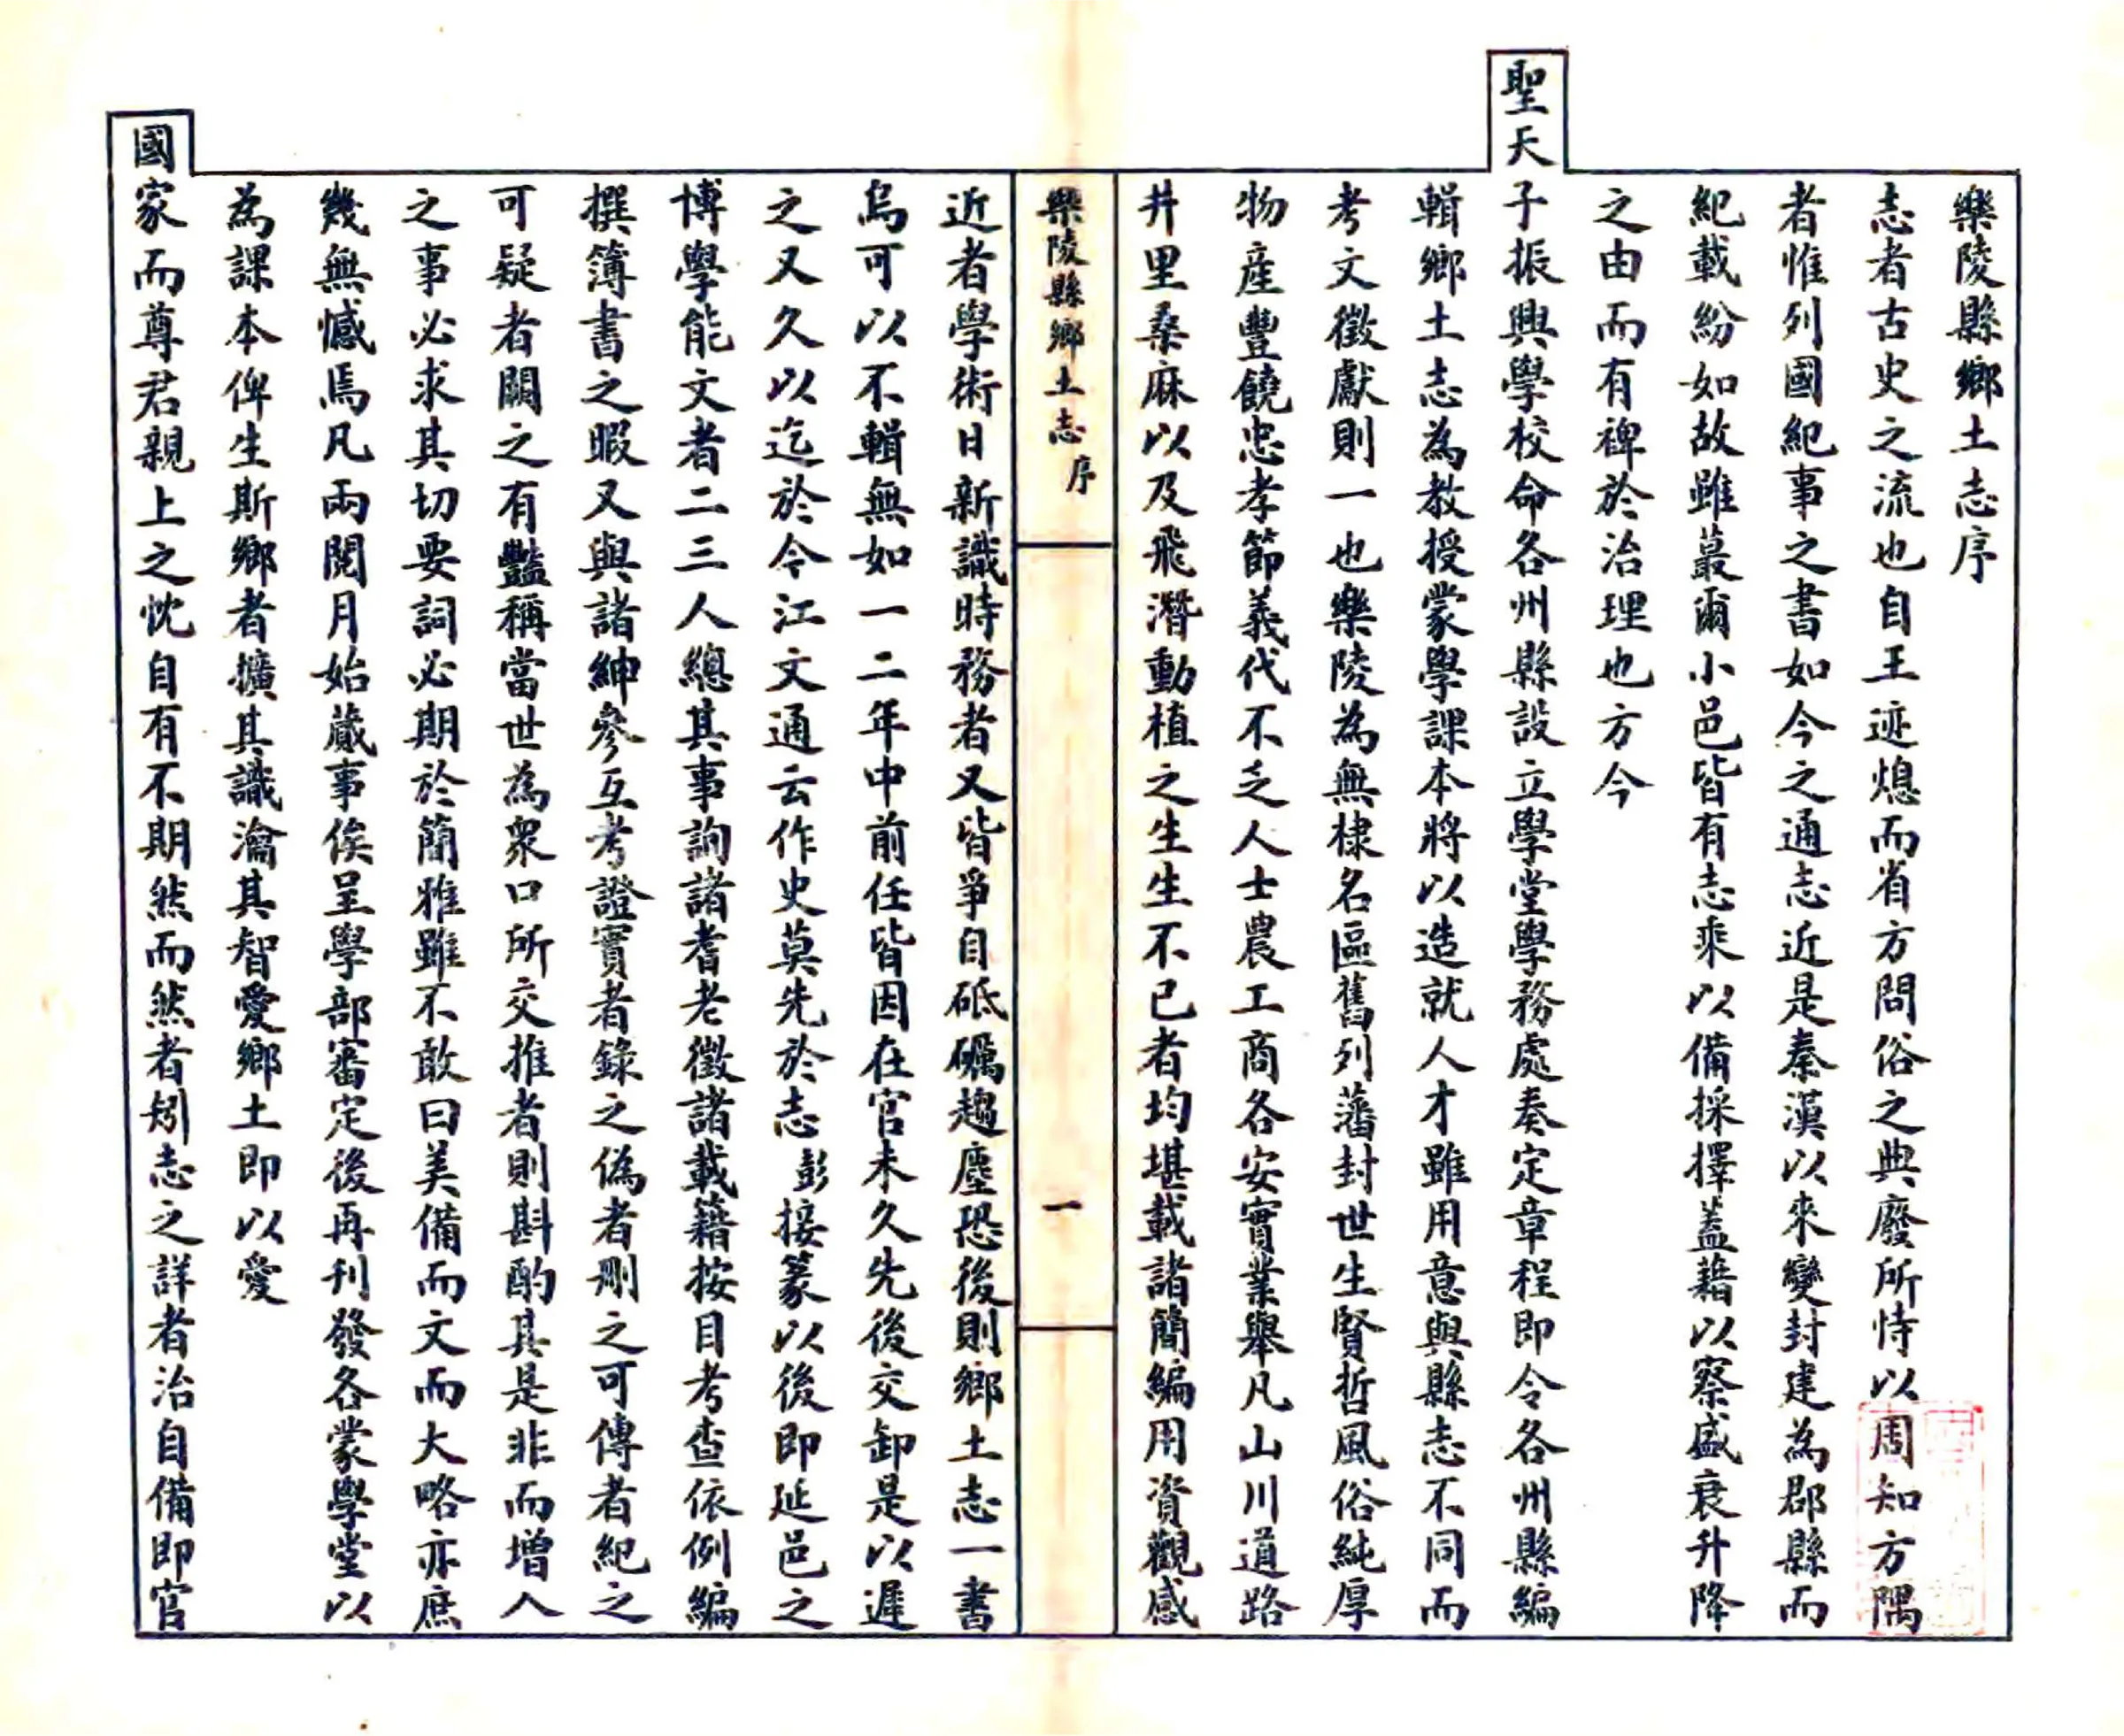 樂陵縣鄉土志序
志者古史之流也自王迹熄而省方問俗之典廢所恃以周知方隅
者惟列國紀事之書如今之通志近是秦漢以來變封建為郡縣而
紀載紛如故雖蕞爾小邑皆有志乘以備採擇蓋藉以察盛衰升降
之由而有裨於治理也方今
聖天子振興學校命各州縣設立學堂學務處奏定章程即令各州縣編
輯鄉土志為教授蒙學課本將以造就人才雖用意與縣志不同而
考文徵獻則一也樂陵為無棣名區舊列藩封世生賢哲風俗純厚
物産豐饒忠孝節義代不乏人士農工商各安實業舉凡山川道路
井里桑麻以及飛潛動植之生生不已者均堪載諸簡編用資觀感
樂陵縣鄉土志 序
一
近者學術日新識時務者又皆爭自砥礪趨塵恐後則鄉土志一書
烏可以不輯無如一二年中前任皆因在官未久先後交卸是以遲
之又久以迄於今江文通云作史莫先於志彭接篆以後即延邑之
博學能文者二三人總其事詢諸耆老徵諸載籍按目考查依例編
撰簿書之暇又與諸紳參互考證實者錄之偽者刪之可傳者紀之
可疑者闕之有豔稱當世為衆口所交推者則斟酌其是非而增人
之事必求其切要詞必期於簡雅雖不敢曰美備而文而大略亦庶
幾無憾焉凡兩閱月始蕆事俟呈學部審定後再刊發各蒙學堂以
為課本俾生斯鄉者擴其識瀹其智愛鄉土即以愛
國家而尊君親上之忱自有不期然而然者矧志之詳者治自備即官